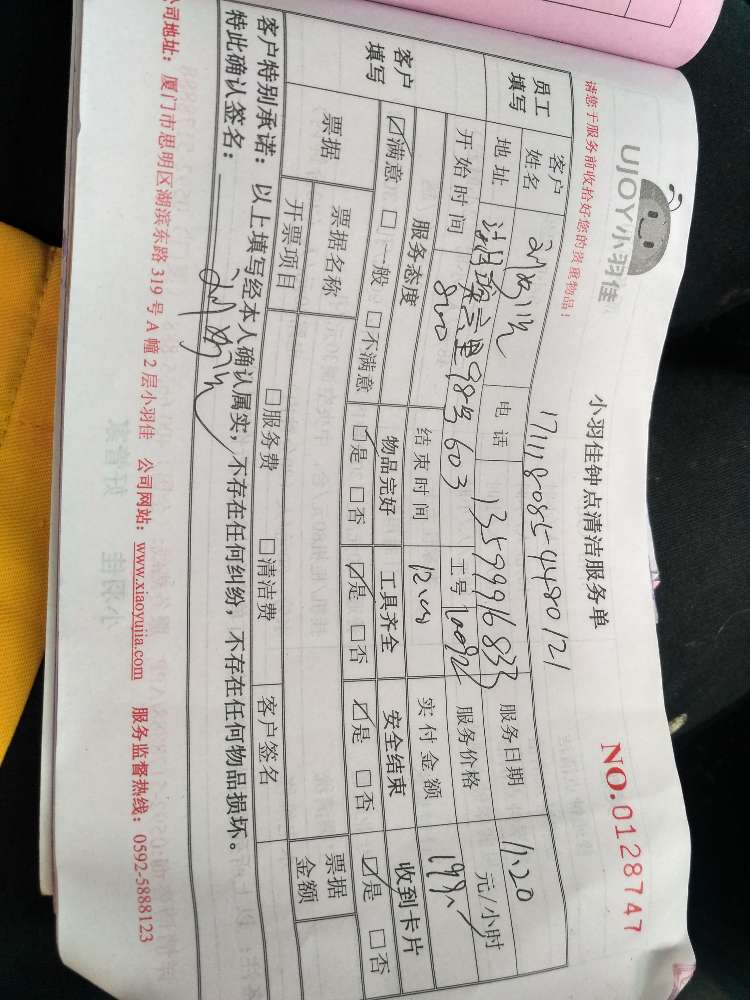 UJOY小羽佳
小羽佳钟点清洁服务单
NO.0128747
请您于服务前收拾好您的贵重物品！
1711180854480121
员工填写
客户姓名
电话 13599916833
服务日期 11.20
地址
六里98号603
工号
服务价格 元/小时
开始时间 8:00
结束时间 12:00
实付金额 198
客户填写
服务态度 物品完好 工具齐全 安全结束 收到卡片
☑满意 □一般 □不满意 ☑是 □否 ☑是 □否 ☑是 □否 ☑是 □否
票据
票据名称
票据金额
开票项目 □服务费 □清洁费 客户签名
客户特别承诺：以上填写经本人确认属实，不存在任何纠纷，不存在任何物品损坏。
特此确认签名：
公司地址：厦门市思明区湖滨东路 319 号 A 幢 2 层小羽佳 公司网站：www.xiaoyujia.com 服务监督热线：0592-5888123